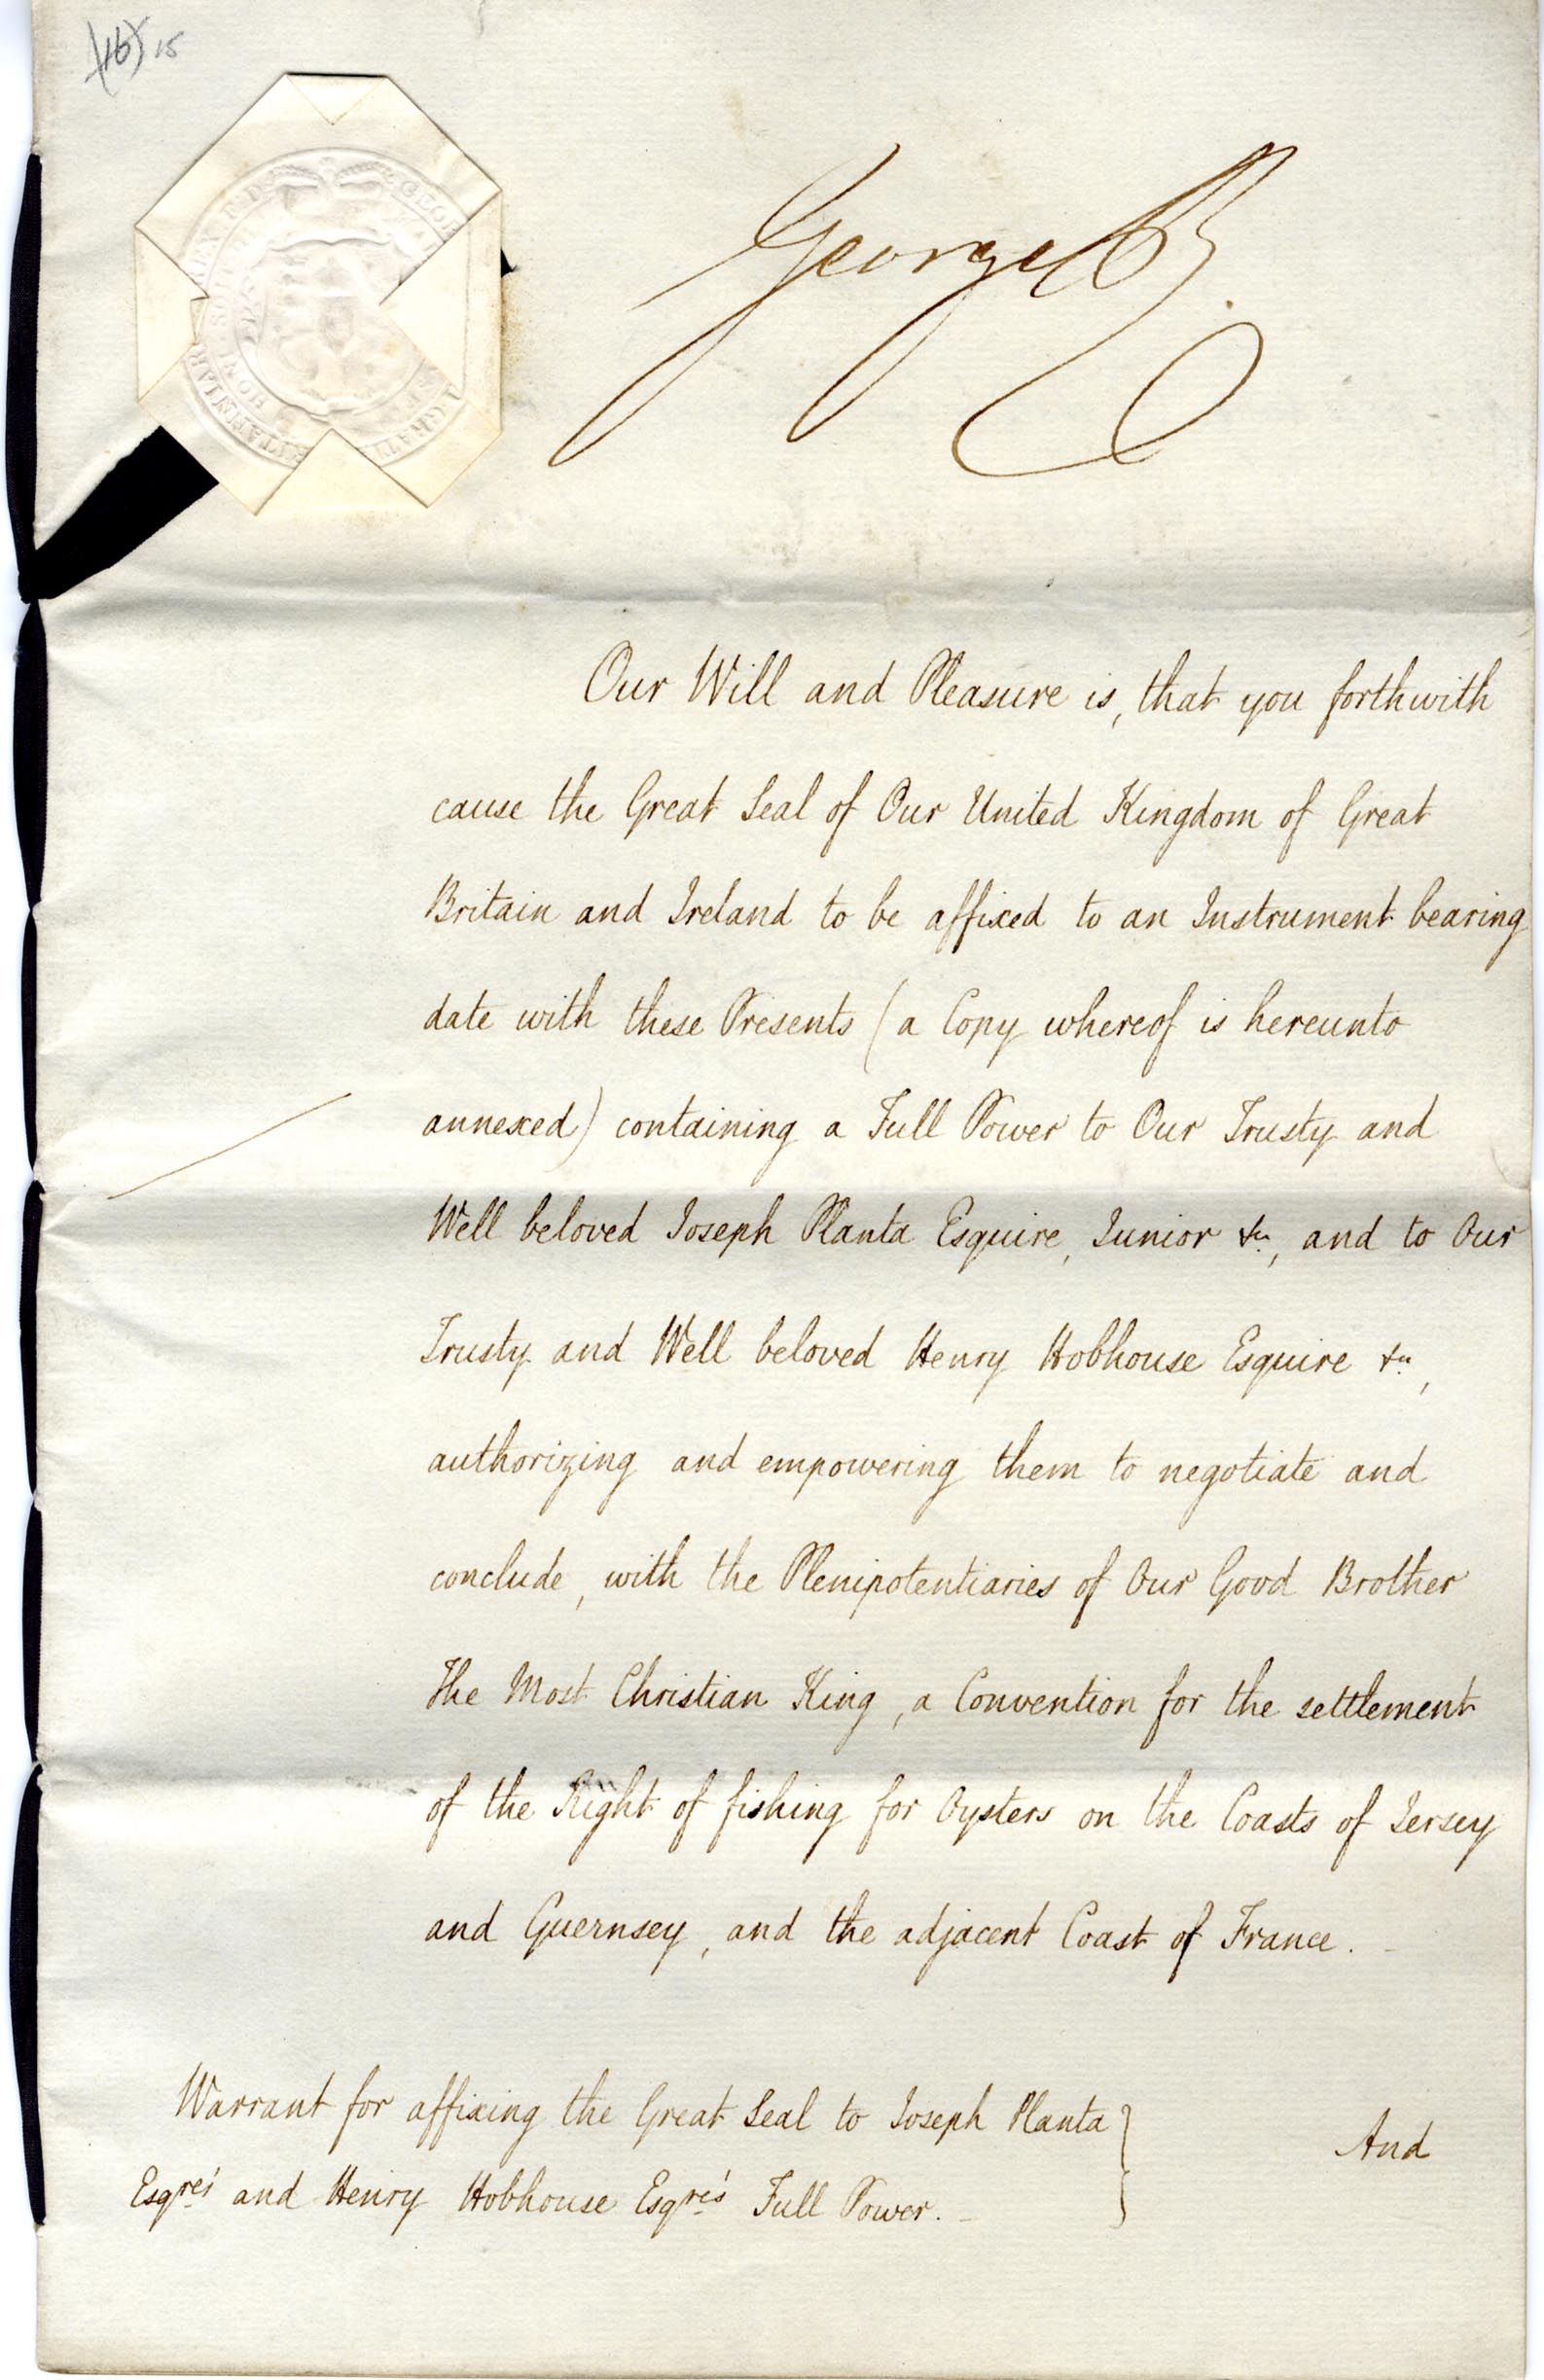 (16) 15
George R.
Our Will and Pleasure is, that you forthwith
cause the Great Seal of Our United Kingdom of Great
Britain and Ireland to be affixed to an Instrument bearing
date with these Presents (a Copy whereof is hereunto
annexed) containing a Full Power to Our Trusty and
Well beloved Joseph Planta Esquire, Junior &c., and to Our
Trusty and Well beloved Henry Hobhouse Esquire &c.,
authorizing and empowering them to negotiate and
conclude, with the Plenipotentiaries of Our Good Brother
The Most Christian King, a Convention for the settlement
of the Right of fishing for Oysters on the Coasts of Jersey
and Guernsey, and the adjacent Coast of France.
Warrant for affixing the Great Seal to Joseph Planta
Esqre's and Henry Hobhouse Esqre's Full Power.
And